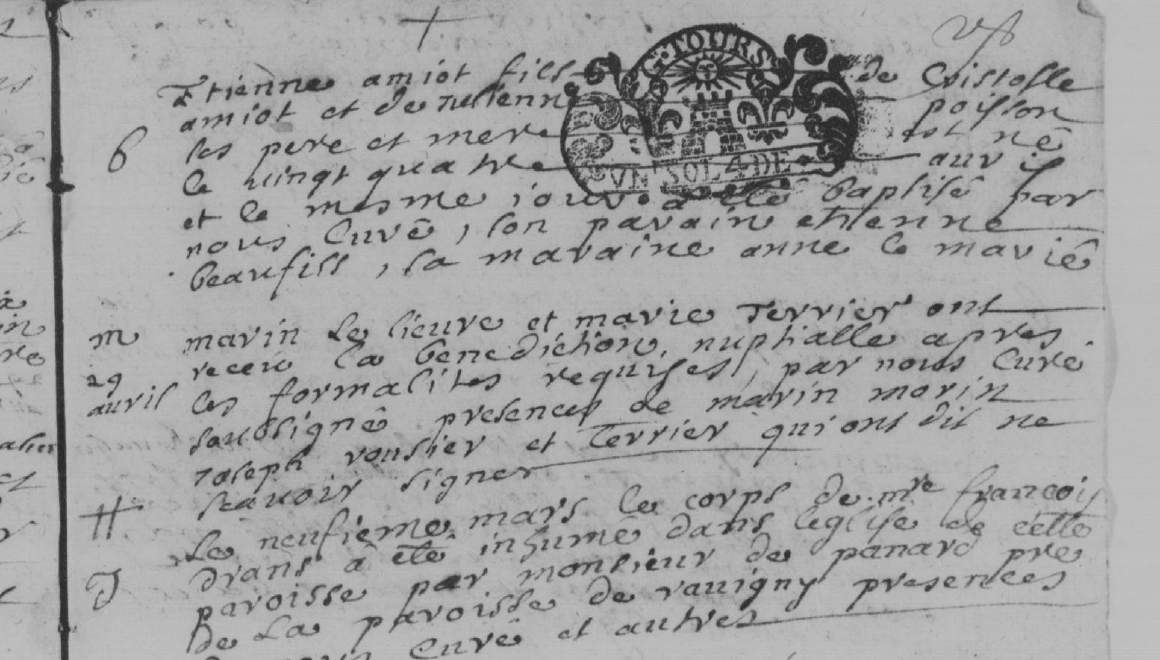 Etienne amiot fills de Cristofle
amiot et de julienne poisson
6 les pere et mere est né
le vingt quatre auvril
et le mesme iour a ete baptisé par
nous Curé, son parain etienne
beaufils, la maraine anne le marié
G. TOURS
UN SOL 4 DE.
m marin le lieure et marie Terrier ont
29 receu la benediction, nuptialle apres
auril les formalites requises, par nous Curé
soubsigné presences de marin morin
Joseph et Terrier qui ont dit ne
scauoir signer
Le neufieme mars le corps de mre francois
drans a ete inhumé dans leglise de cette
paroisse par monsieur de panard pre
de La paroisse de presences
Curé et autres